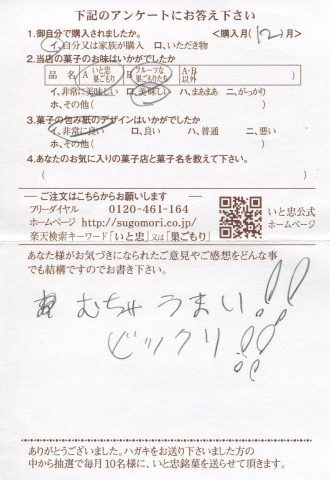 下記のアンケートにお答え下さい
1.御自分で購入されましたか。 <購入月( 12 )月>
イ,自分又は家族が購入 ロ,いただき物
2.当店の菓子のお味はいかがでしたか
品 名 A いと忠巣ごもり B フルーツな巣ごもりたち A・B以外
イ,非常に美味しい ロ,美味しい ハ,まあまあ ニ,がっかり
ホ,その他( )
3.菓子の包み紙のデザインはいかがでしたか
イ,非常に良い ロ,良い ハ,普通 ニ,悪い
ホ,その他( )
4.あなたのお気に入りの菓子店と菓子名を教えて下さい。
( )
ご注文はこちらからお願いします
フリーダイヤル 0120-461-164
ホームページ http://sugomori.co.jp/
楽天検索キーワード「いと忠」又は「巣ごもり」
いと忠公式
ホームページ
あなた様がお気づきになられたご意見やご感想をどんな事
でも結構ですのでお書き下さい。
むちゃうまい!!
ビックリ!!
ありがとうございました。ハガキをお送り下さいました方の
中から抽選で毎月10名様に、いと忠銘菓を送らせて頂きます。